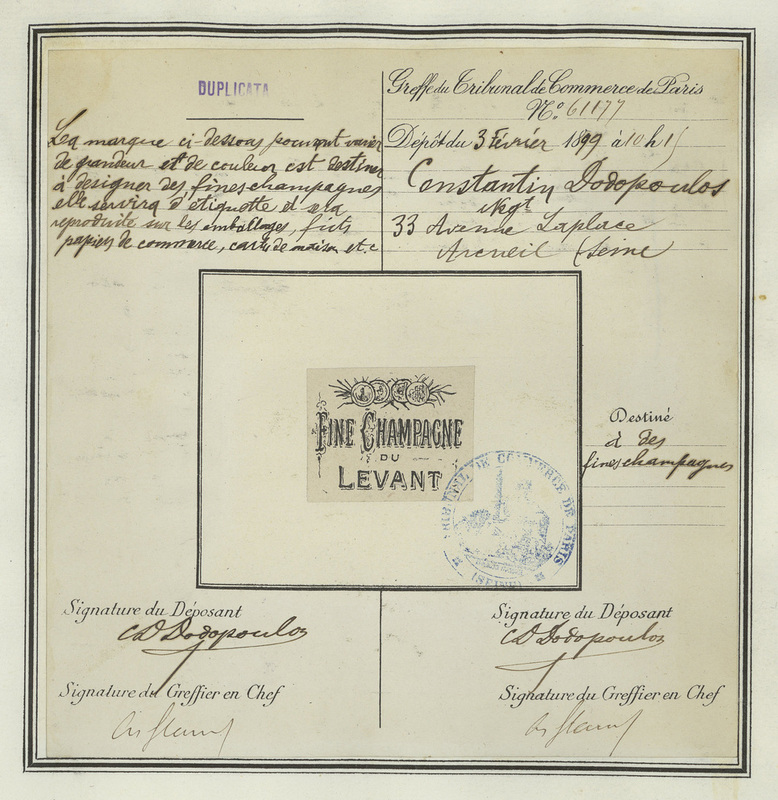 DUPLICATA
La marque ci-dessous pouvant varier
de grandeur et de couleur est destinée
à désigner des fines champagnes
elle servira d'étiquette et sera
reproduite sur les emballages, fûts
papiers de commerce, cartes de maison etc
Greffe du Tribunal de Commerce de Paris
No. 61177
Dépôt du 3 Février 1899 à 10 h 15
Constantin Dodopoulos
Negt
33 Avenue Laplace
Arcueil (Seine)
FINE CHAMPAGNE
DU
LEVANT
TRIBUNAL DE COMMERCE DE PARIS
(SEINE)
Destiné
à des
fines champagnes
Signature du Déposant
CD Dodopoulos
Signature du Greffier en Chef
Signature du Déposant
CD Dodopoulos
Signature du Greffier en Chef